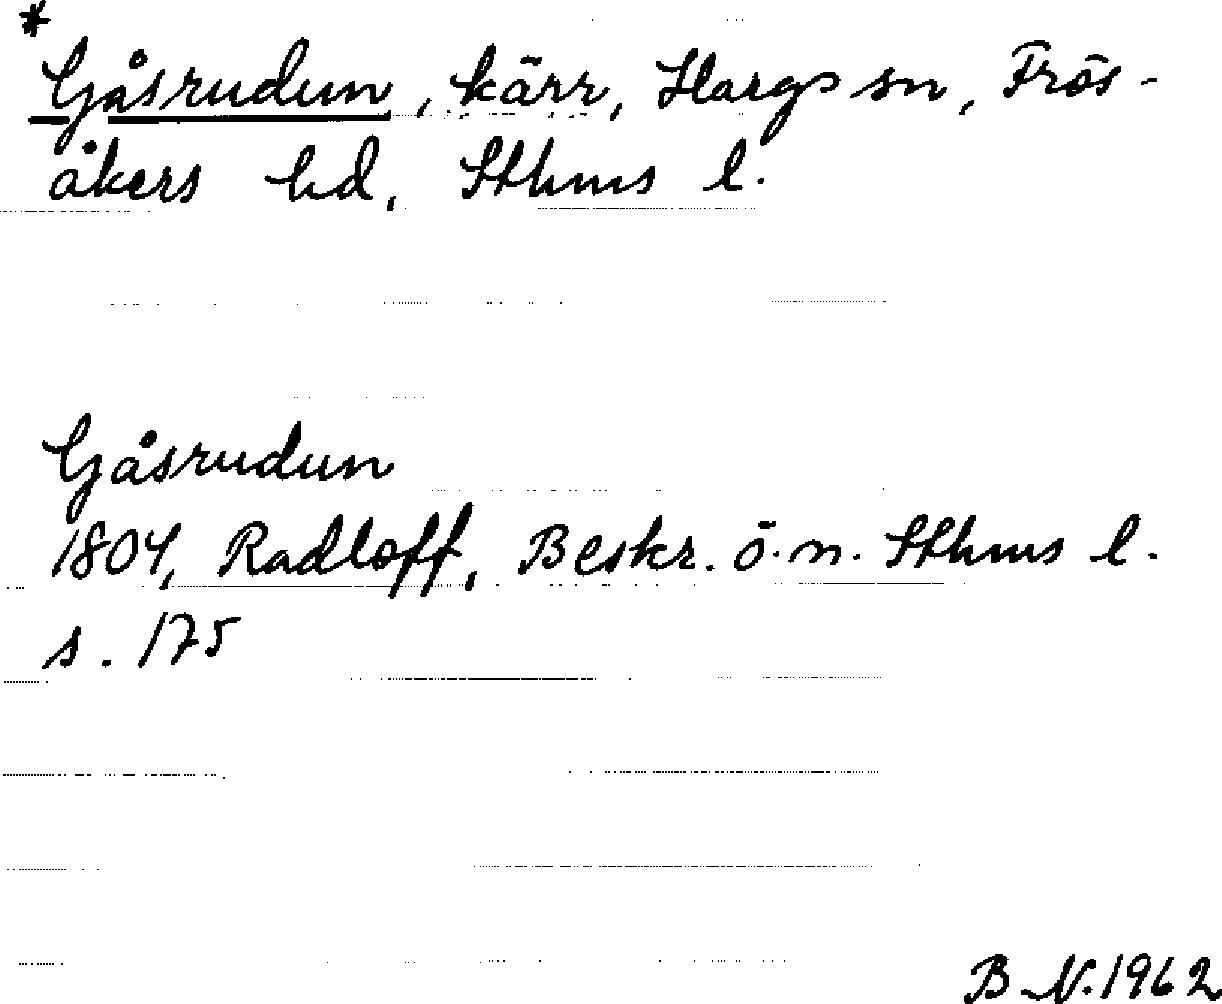 *
Gåsrudun, kärr, Hargs sn, Frös-
åkers hd, Sthms l.
Gåsrudun
1804, Radloff, Beskr. ö. n. Sthms l.
s. 175
B N. 1962